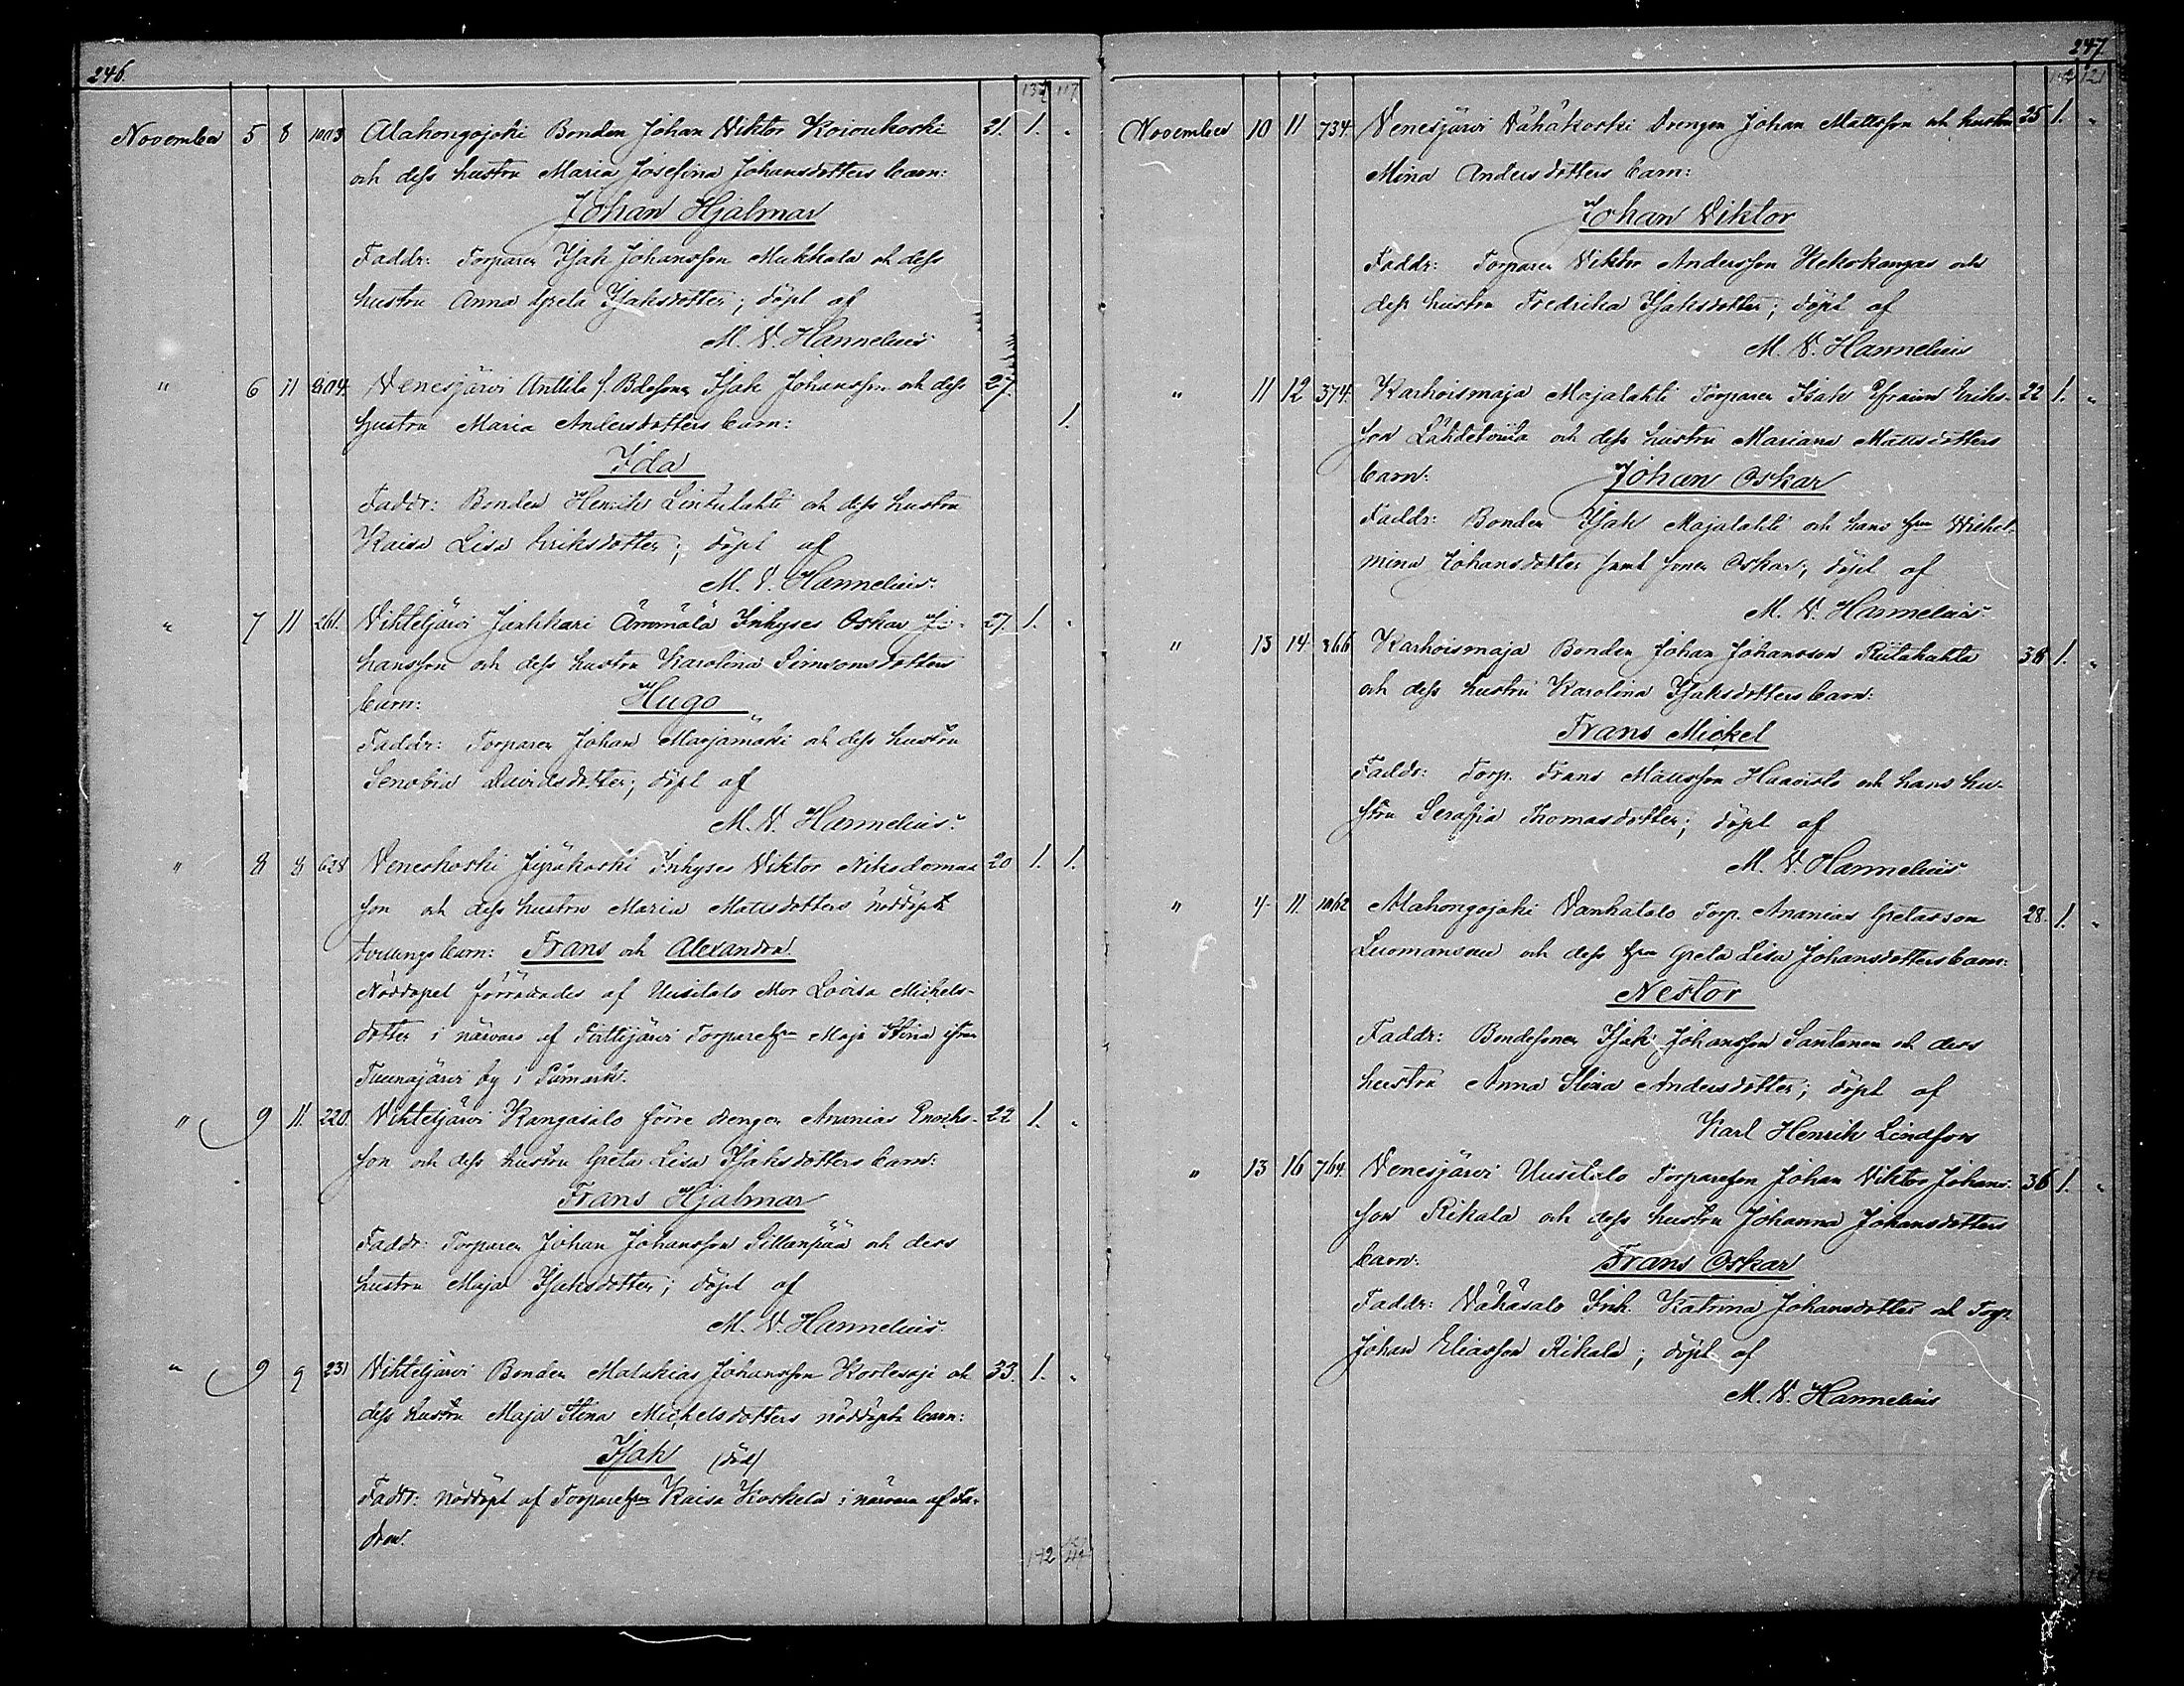 246.
137 117
November 5 8 1003 Alahongojoki Bonden Johan Viktor Koivukoski 21. 1. "
och dess hustru Maria Josefina Johansdotters barn:
Johan Hjalmar
Faddr: Torparen Isak Johansson Mukkala och dess
hustru Anna Greta Isaksdotter; döpt af
M. V. Hannelius
" 6 11 Venesjärvi Anttila f. Bdesonen Isak Johansson och dess 27.
hustru Maria Andersdotters barn: 1.
Ida
Faddr: Bonden Henrik Lintulahti och dess hustru
Kaisa Lisa Eriksdotter; döpt af
M. V. Hannelius.
" 7 11 261. Vihteljärvi Jankkari Ämmälä Inhyses Oskar Jo- 27. 1. "
hansson och dess hustru Karolina Simonsdotters
barn: Hugo
Faddr: Torparen Johan Marjamäki och dess hustru
Senobia Davidsdotter; döpt af
M. V. Hannelius.
" 8 8 628 Veneskoski Jyräkoski Inhyses Viktor Nikodemus 20 1. 1.
son och dess hustru Maria Mattsdotters nöddöpta
tvillingsbarn: Frans och Alexandra.
Nöddopet förrättades af Uusitalo Mor Lovisa Mickels-
dotter i närvaro af Torparehru Maja Stina ifrån
Tuunajärvi by i Påmark.
" 9 11. 220. Vihteljärvi Kangasalo förre drengen Ananias Enochs- 22 1. "
son och dess hustru Greta Lisa Isaksdotters barn:
Frans Hjalmar
Faddr: Torparen Johan Johansson Sillanpää och dess
hustru Maja Isaksdotter; döpt af
M. V. Hannelius.
" 9 9 231 Vihteljärvi Bonden Malakias Johansson och 33. 1. "
dess hustru Maja Stina Michelsdotters nöddöpta barn:
Isak (död)
Faddr: nöddöpt af Torparehru Kaisa Koskela i närvaro af fa-
dren.
142
247.
142 121
November 10 11 734. Venesjärvi Vähäkoski Drengen Johan Mattsson och hustru 25 1. "
Mina Andersdotters barn:
Johan Viktor
Faddr: Torparen Viktor Andersson Kekokangas och
dess hustru Fredrika Isaksdotter; döpt af
M. V. Hannelius
" 11 12 374. Karhoismaja Majalahti Torparen Isak Efraim Eriks- 22 1. "
son Lähdeluoma och dess hustru Mariana Mattsdotters
barn: Johan Oskar
Faddr: Bonden Isak Majalahti och hans hru Wilhel-
mina Johansdotter samt sonen Oskar; döpt af
M. V. Hannelius.
" 13 14 366 Karhoismaja Bonden Johan Johansson Riitahuhta 38 1. "
och dess hustru Karolina Isaksdotters barn:
Frans Mickel
Faddr: Torp. Frans Mattsson Haavisto och hans hu-
stru Serafia Thomasdotter; döpt af
M. V. Hannelius
" 4 11. 1062 Alahongojoki Vanhatalo Torp. Ananias Gretasson 28. 1. "
Luomansuu och dess hru Greta Lisa Johansdotters barn:
Nestor
Faddr: Bondesonen Isak Johansson Santanen och dess
hustru Anna Stina Andersdotter; döpt af
Karl Henrik Lindfors
" 13 16 764. Venesjärvi Uusitalo Torpareson Johan Viktor Johans- 36 1. "
son Rikala och dess hustru Johanna Johansdotters
barn: Frans Oskar
Faddr: Vähäsalo Inh. Katrina Johansdotter och Torp.
Johan Eliasson Rikala; döpt af
M. V. Hannelius